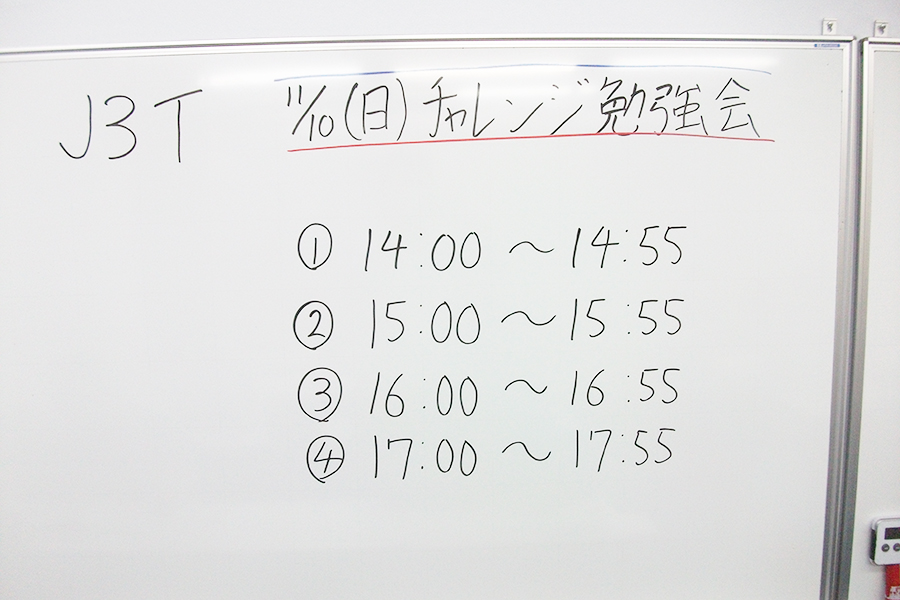 J3T
11/10(日)チャレンジ勉強会
① 14:00 〜 14:55
② 15:00 〜 15:55
③ 16:00 〜 16:55
④ 17:00 〜 17:55